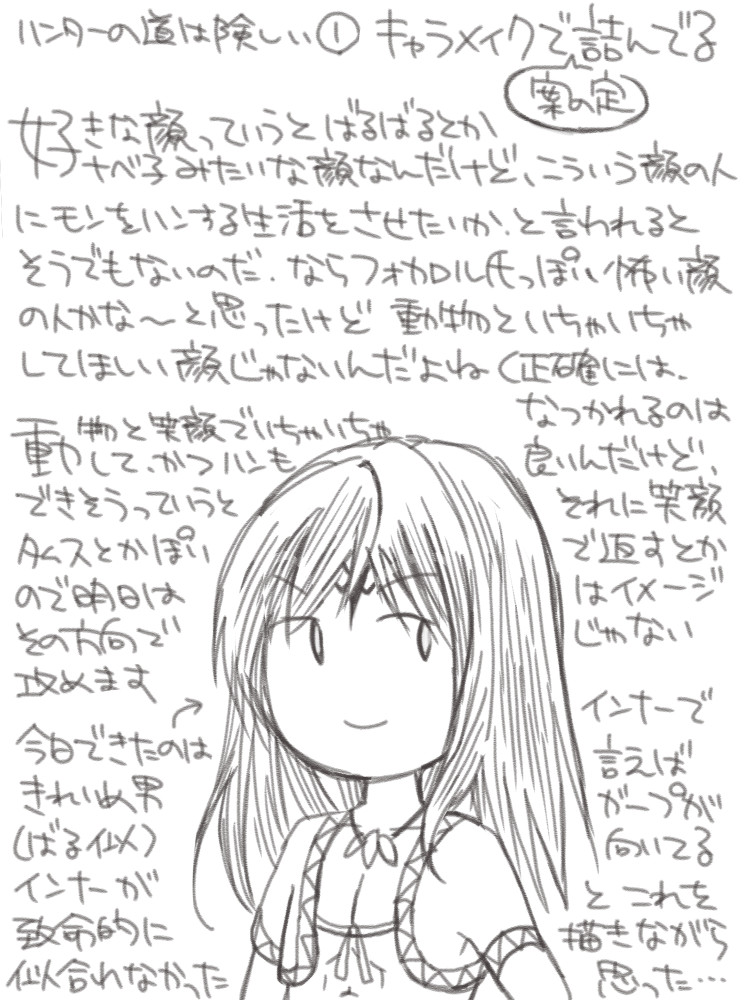 ハンターの道は険しい① キャラメイクで詰んでる
案の定
好きな顔っていうと ばるばるとか
ナベ子みたいな顔なんだけど、こういう顔の人
にモンをハンする生活をさせたいか、と言われると
そうでもないのだ。ならフォカロル氏っぽい怖い顔
の人かな～と思ったけど 動物といちゃいちゃ
してほしい顔じゃないんだよね(正確には、
なつかれるのは
良いんだけど、
それに笑顔
で返すとか
はイメージ
じゃない
動物と笑顔でいちゃいちゃ
して、かつハンも
できそうっていうと
タムスとかぽい
ので明日は
その方向で
攻めます
今日できたのは
きれいめ男
(ばる似)
インナーが
致命的に
似合れなかった
インナーで
言えば
ガープが
向いてる
と これを
描きながら
思った…